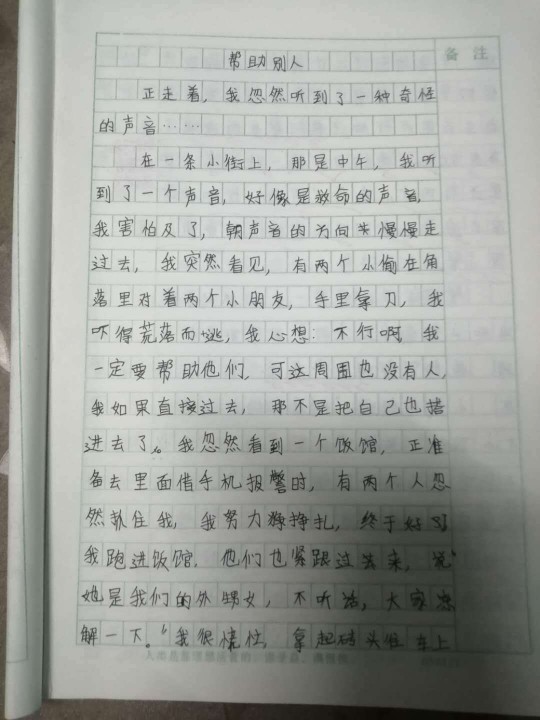 备 注
帮助别人
正走着，我忽然听到了一种奇怪
的声音……
在一条小街上，那是中午，我听
到了一个声音，好像是救命的声音，
我害怕及了，朝声音的方向夹慢慢走
过去，我突然看见，有两个小偷在角
落里对着两个小朋友，手里拿刀，我
吓得荒落而逃，我心想：不行啊，我
一定要帮助他们，可这周围也没有人，
我如果直接过去，那不是把自己也搭
进去了。我忽然看到一个饭馆，正准
备去里面借手机报警时，有两个人忽
然抓住我，我努力狰挣扎，终于好了
我跑进饭馆，他们也紧跟过去来，说“
她是我们的外甥女，不听话，大家
解一下。“我很慌忙，拿起砖头往车上